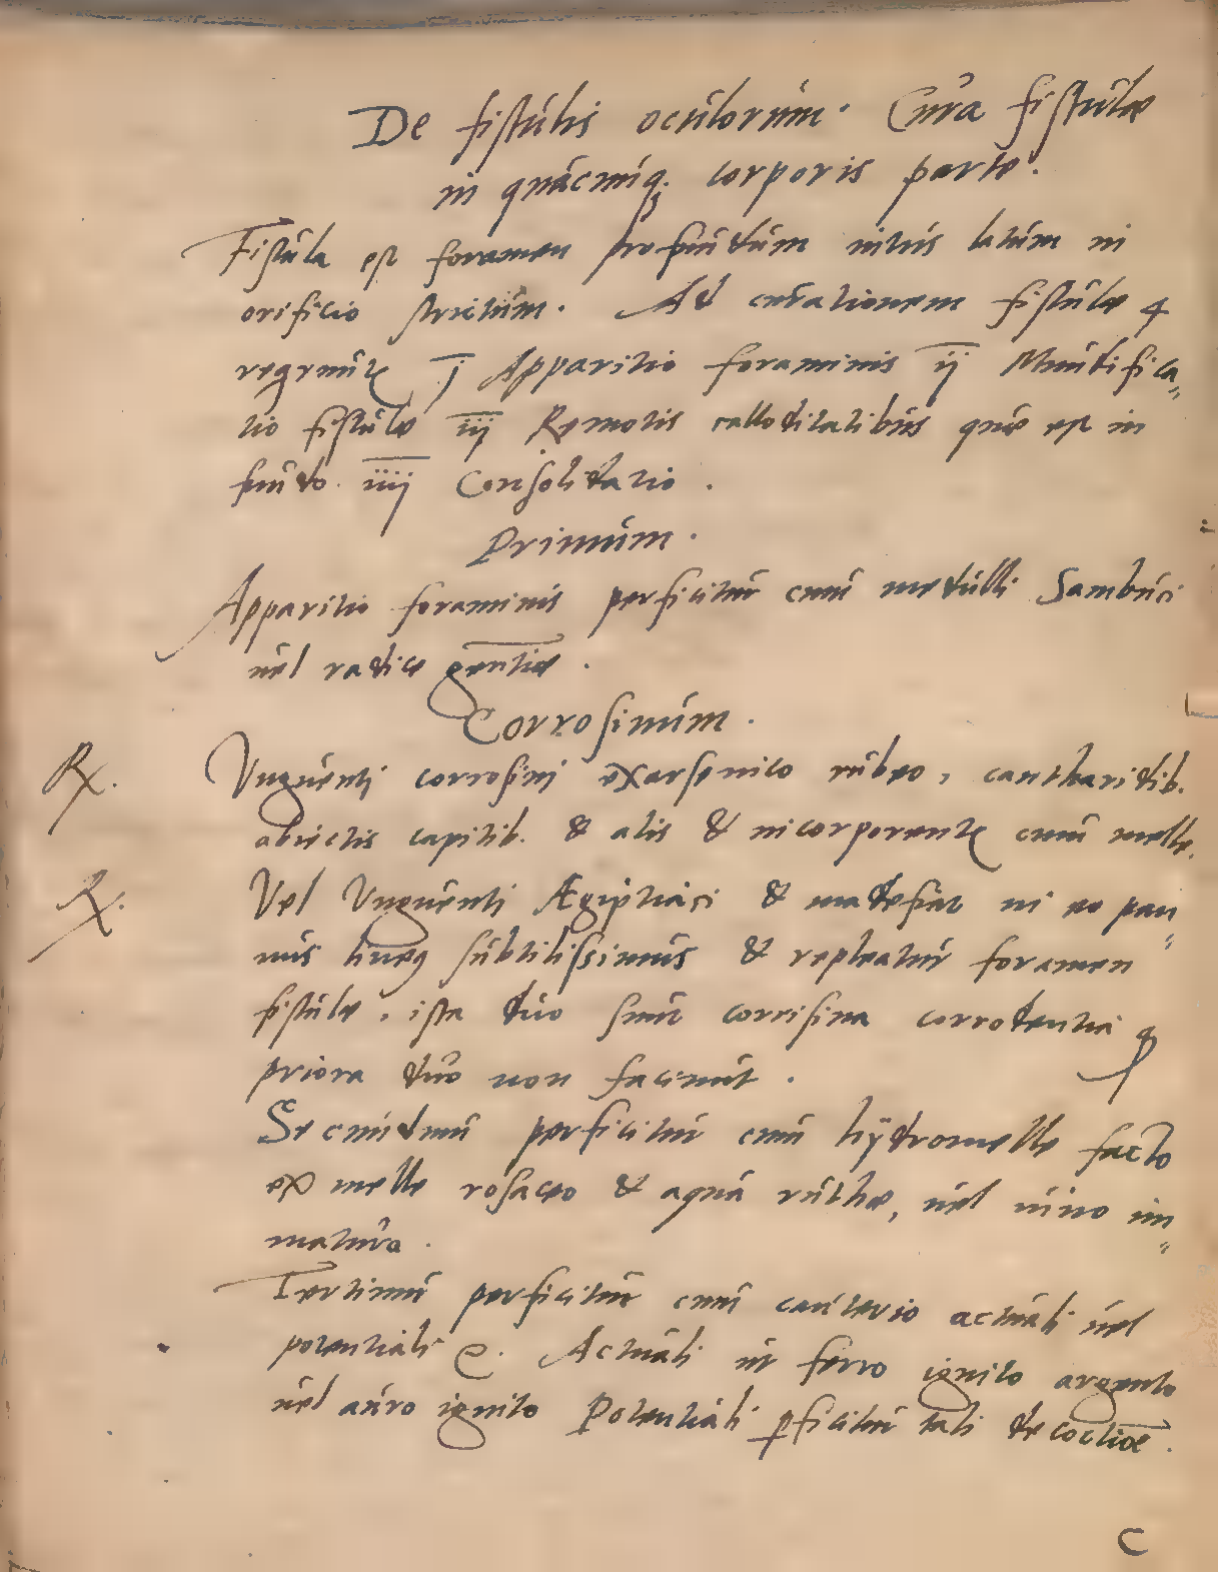 De fistulis oculorum. Cura fistulæ
in quacunq; corporis parte.
Fistula est foramen profundum intus latum in
orificio strictum. Ad curationem fistulæ 4
requirunt͛ j Apparitio foraminis ij Mundifica„
tio fistulæ iij Remotis calloditatibus quæ est in
fundo. iiij Consolidatio.
Primum.
Apparitio foraminis perficitur cum medulli Sambuci
uel radice gentiæ.
Corrosiuum.
℞. Vnguenti corrosiui ex arsenico rubeo, cantharidib.
abiectis capitib. & alis & incorporent͛ cum melle.
℞. Vel Vnguenti Ægiptiaci & madefiat in eo pan„
nus lineꝰ subtilissimus & repleatur foramen
fistulæ, ista duo sunt corrisiua corrodentia ꝙ
priora duo non faciunt.
Secundum perficitur cum hÿdromelle facto
ex melle rosaceo & aqua ruthæ, uel uino im„
maturo.
Tertium perficitur cum cauterio actuali uel
potentiali. Actuali ut ferro ignito argento
uel auro ignito Potentiali ꝑficitur tali decoctioē.
C